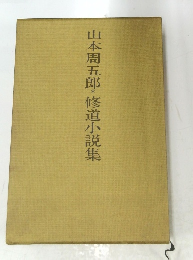 山本周五郎 修道小説集